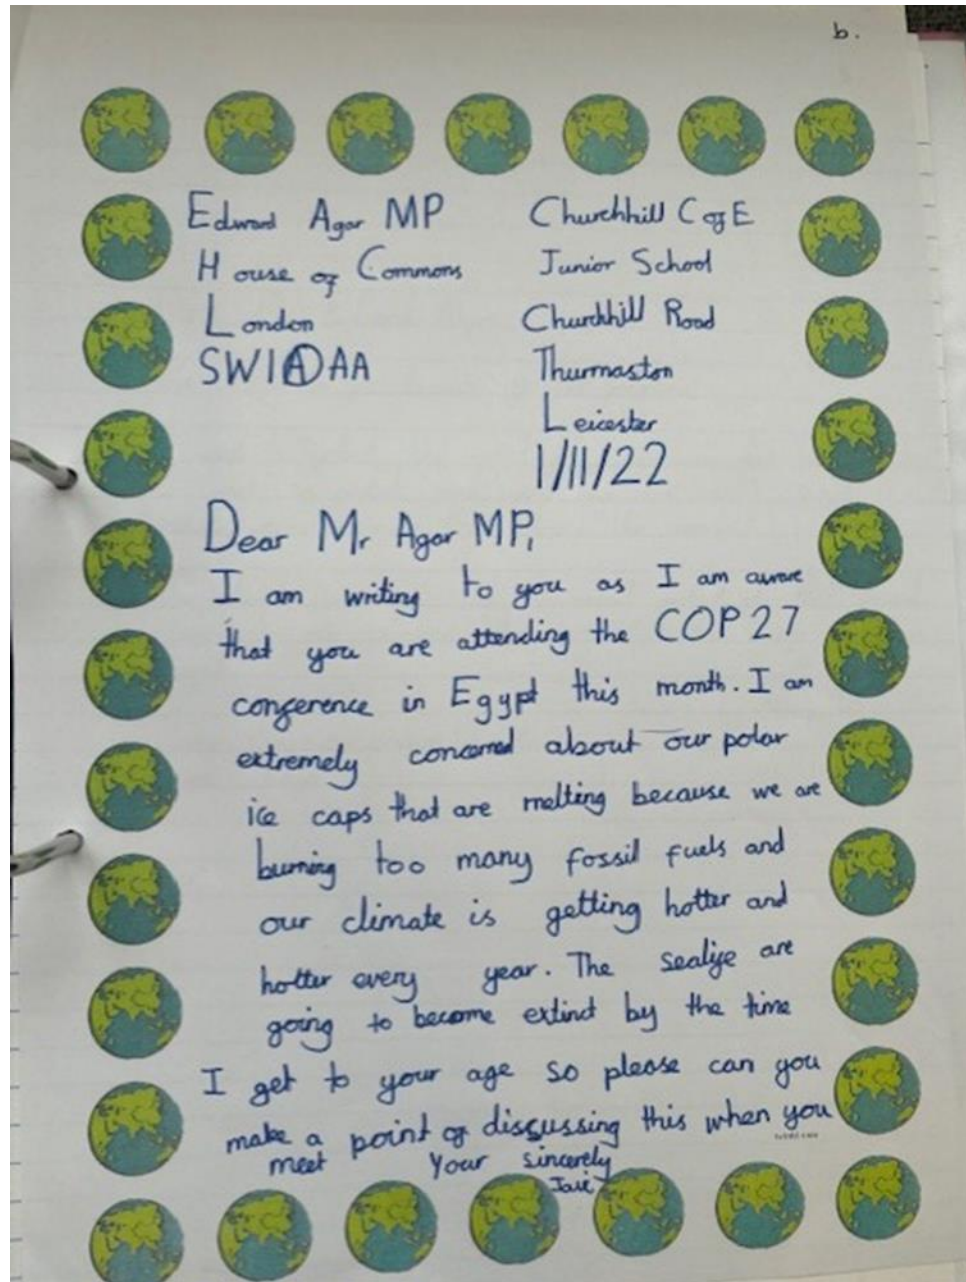 b.
Edward Agar MP
House of Commons
London
SW1A0AA
Churchhill C of E
Junior School
Churchhill Road
Thurmaston
Leicester
1/11/22
Dear Mr Agar MP,
I am writing to you as I am aware
that you are attending the COP27
conference in Egypt this month. I am
extremely concerned about our polar
ice caps that are melting because we are
burning too many fossil fuels and
our climate is getting hotter and
hotter every year. The sealife are
going to become extinct by the time
I get to your age so please can you
make a point of discussing this when you
meet Your sincerely